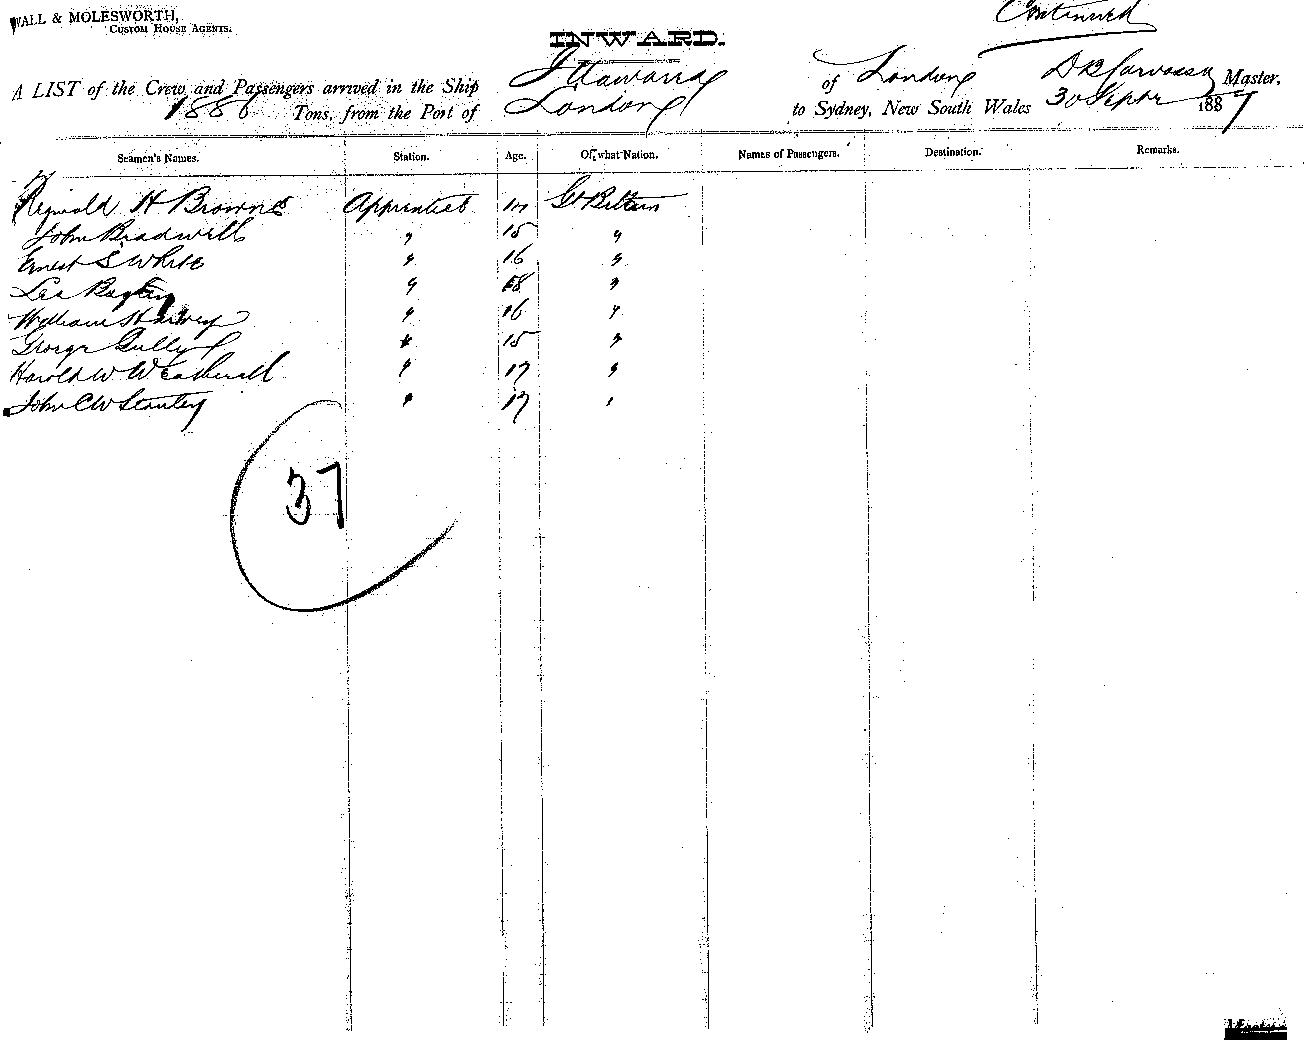 WALL & MOLESWORTH,
CUSTOM HOUSE AGENTS.
Continued
INWARD.
A LIST of the Crew and Passengers arrived in the Ship Illawarra of London Master,
1886 Tons, from the Port of London to Sydney, New South Wales 30 Septr 1887
Seamen's Names. Station. Age. Of what Nation. Names of Passengers. Destination. Remarks.
H Browne Apprentices Gt Britain
John Bradwell " 15 "
Ernest S White " 16 "
" 18 "
William Harvey " 16 "
George Gully " 15 "
Harold W Weatherall " 17 "
John C W Stanley " 17 "
37